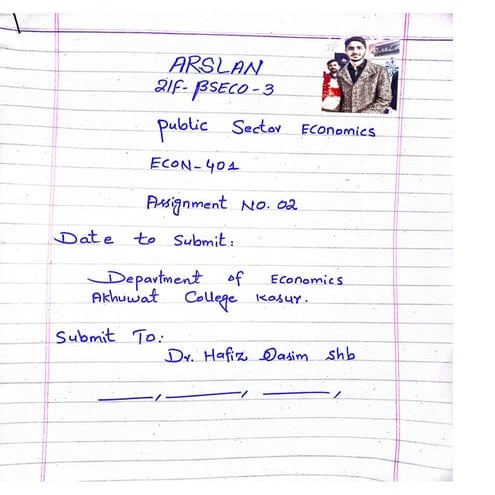 ARSLAN
21F-BSECO-3
Public Sector Economics
ECON-401
Assignment NO. 02
Date to Submit:
Department of Economics
Akhuwat College Kasur.
Submit To:
Dr. Hafiz Qasim shb